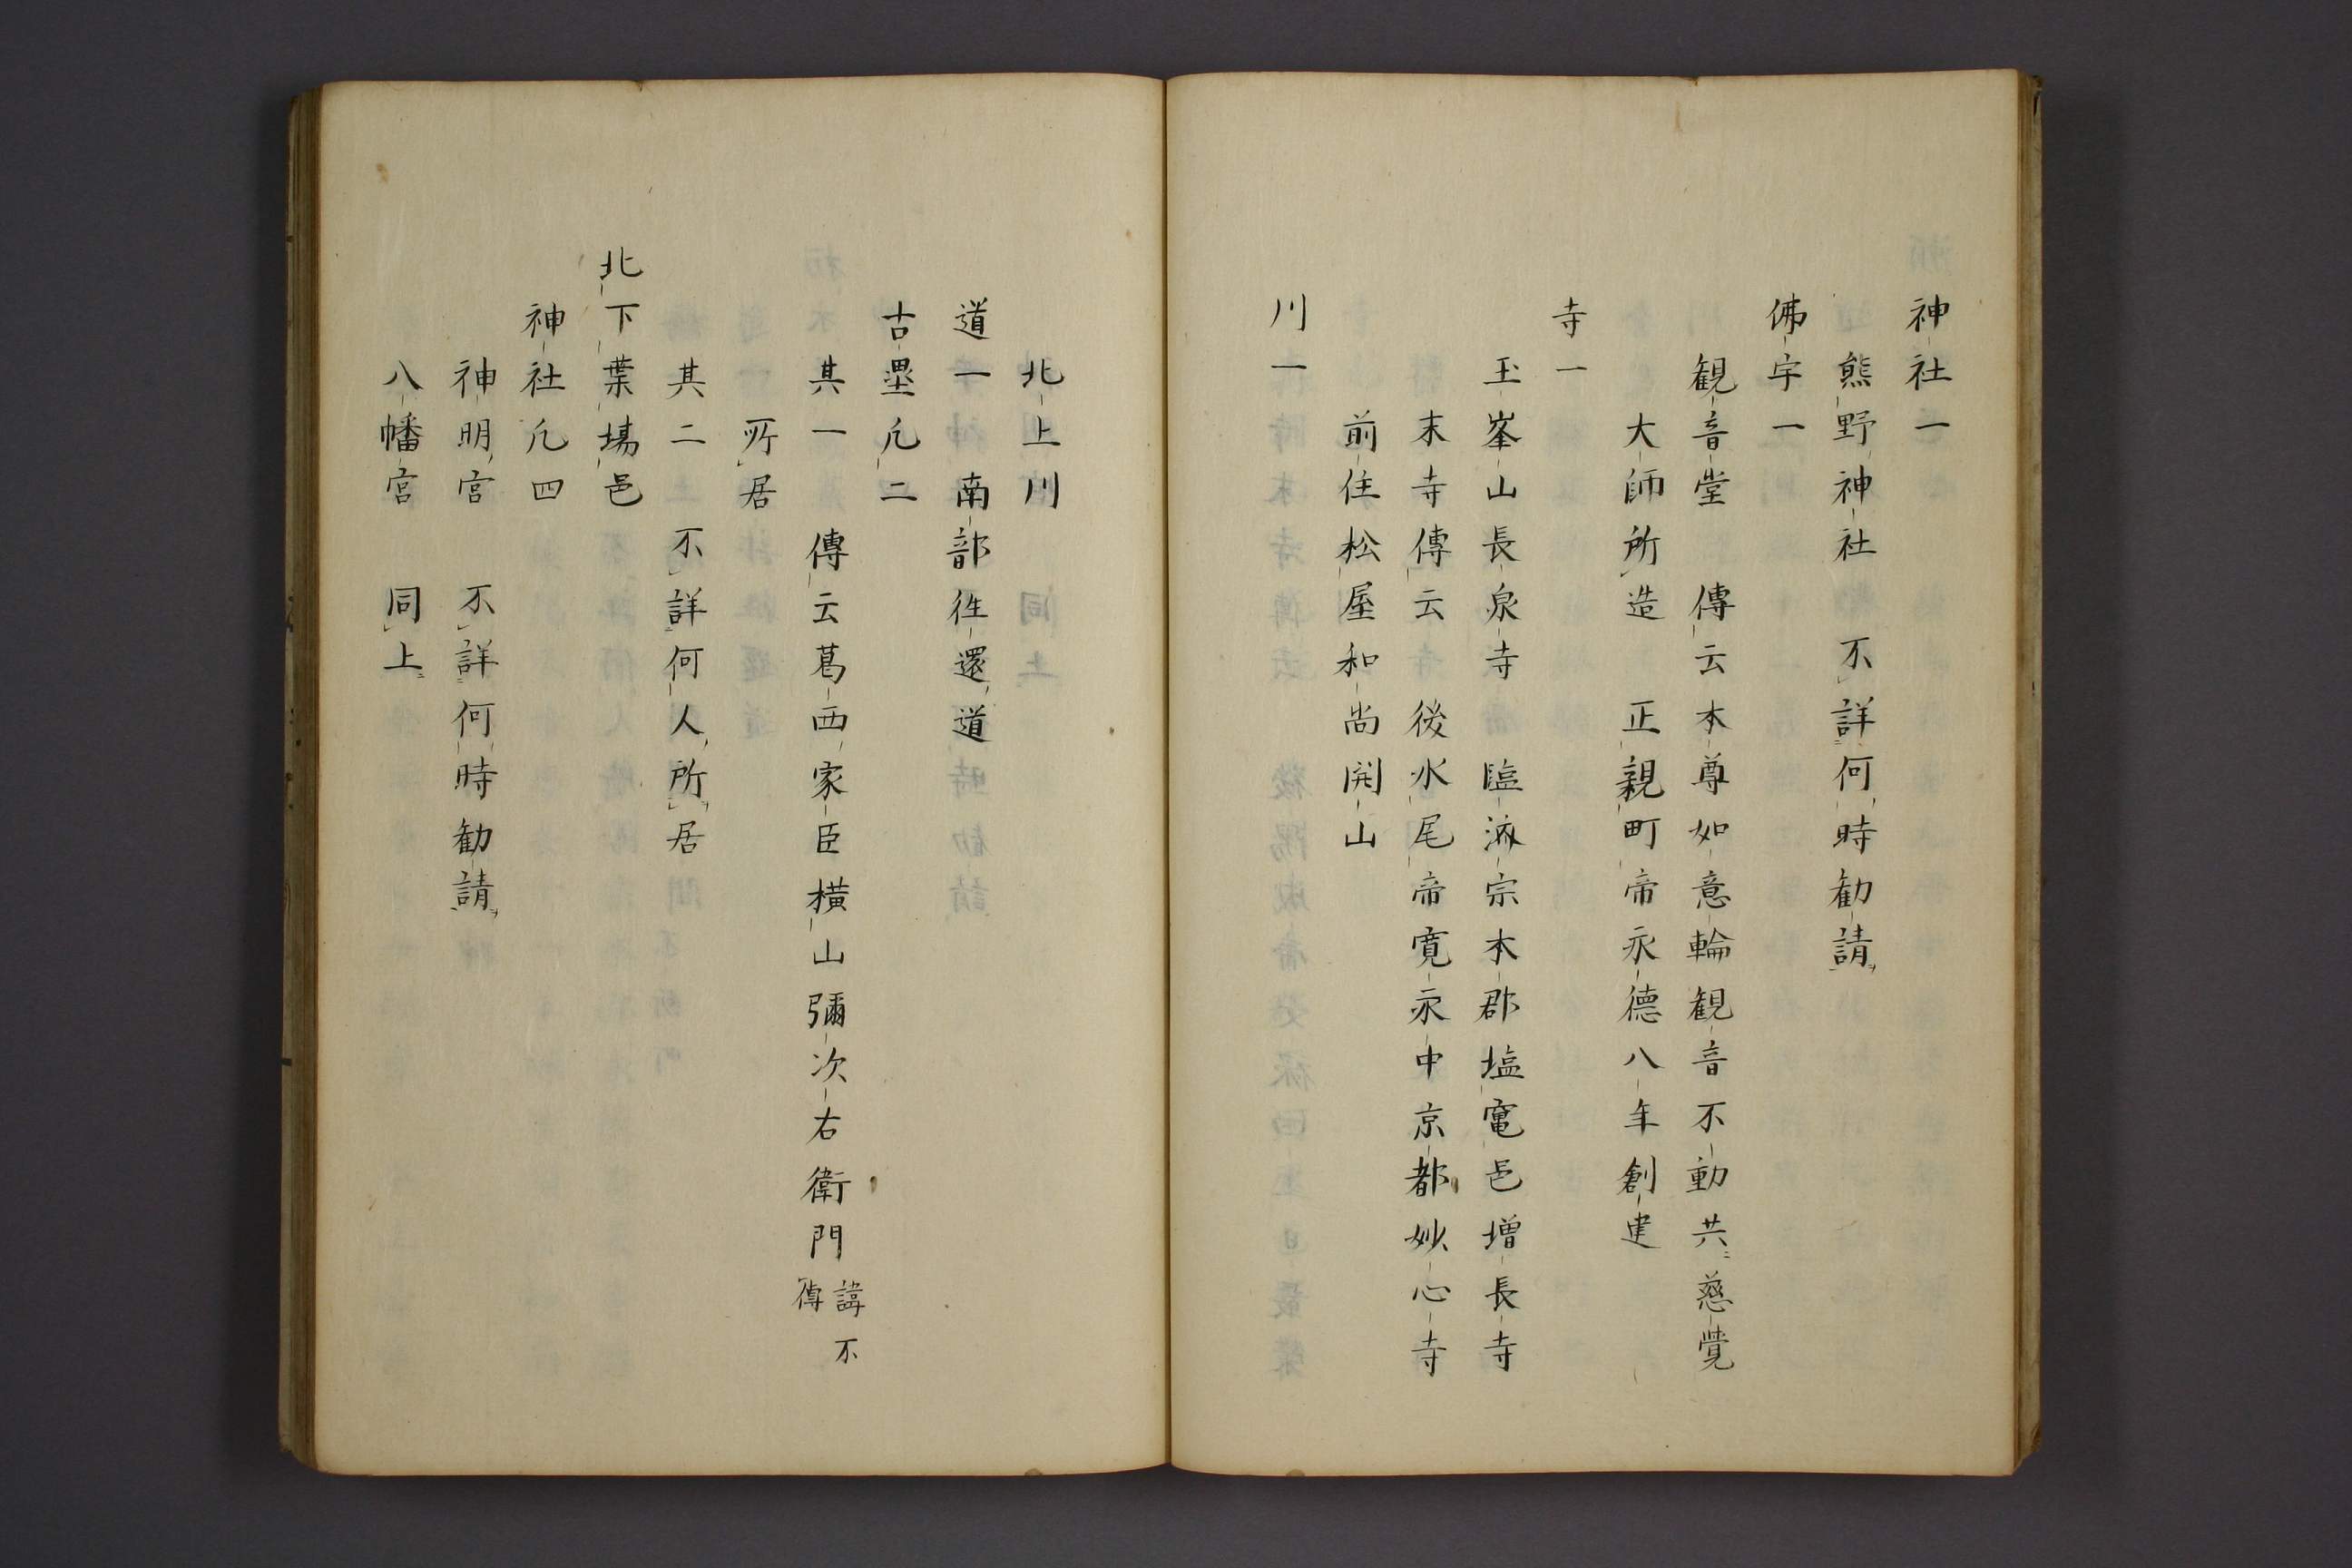 神社一
熊野神社 不詳何時勧請
佛宇一
観音堂 傳云本尊如意輪観音不動共慈覚
大師所造 正親町帝永徳八年創建
寺一
玉峯山長泉寺 臨済宗本郡塩竃邑増長寺
末寺傳云 後水尾帝寛永中京都妙心寺
前住松屋和尚開山
川一
北上川
道一 南部徃還道
古壘凡二
其一 傳云葛西家臣横山彌次右衛門諱不傳
所居
其二 不詳何人所居
北下葉場邑
神社凡四
神明宮 不詳何時勧請
八幡宮 同上